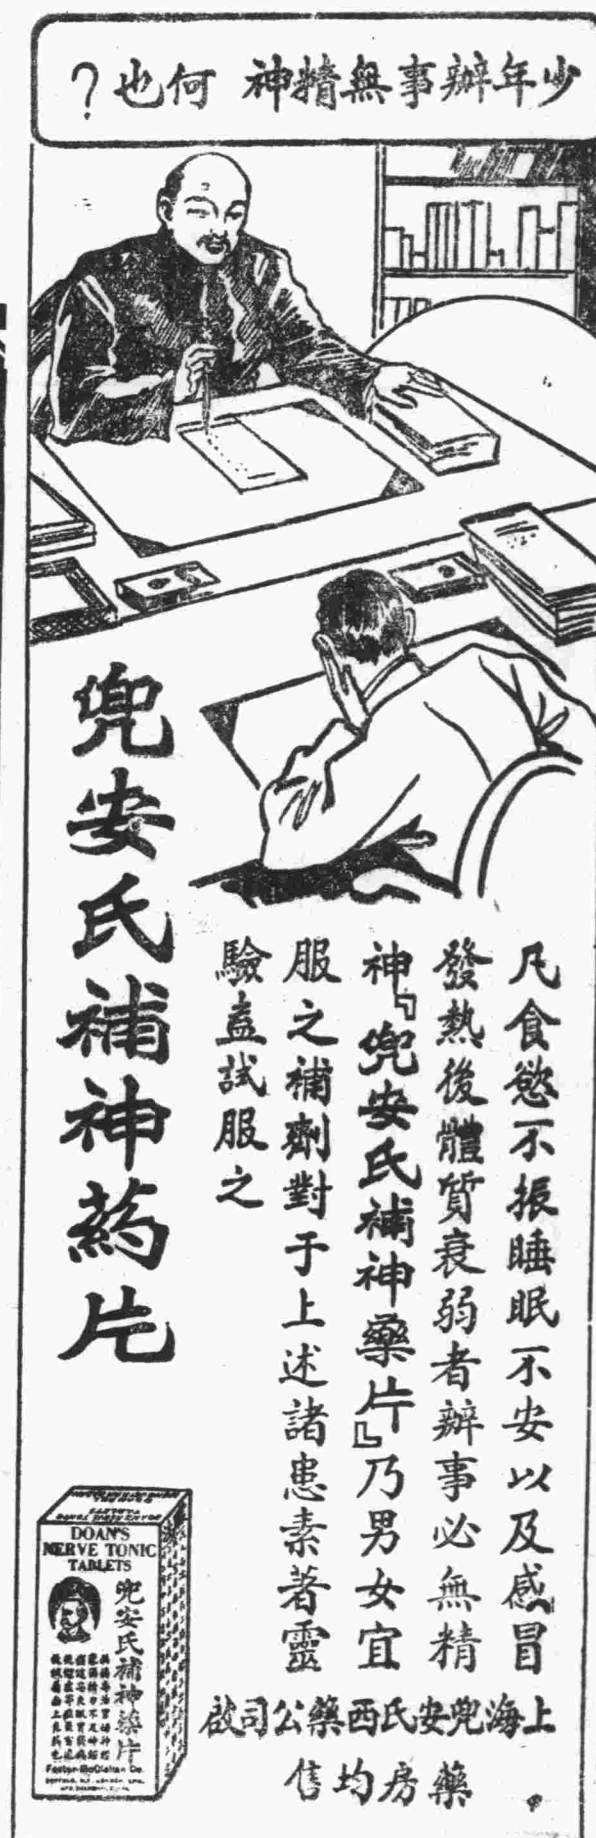 少年辦事無精神 何也？
凡食慾不振睡眠不安以及感冒
發熱後體質衰弱者辦事必無精
神『兜安氏補神藥片』乃男女宜
服之補劑對于上述諸患素著靈
驗盍試服之
兜安氏補神葯片
上海兜安氏西藥公司啟
藥房均售
DOAN'S
NERVE TONIC
TABLETS
兜安氏補神藥片
Foster-McClellan Co.